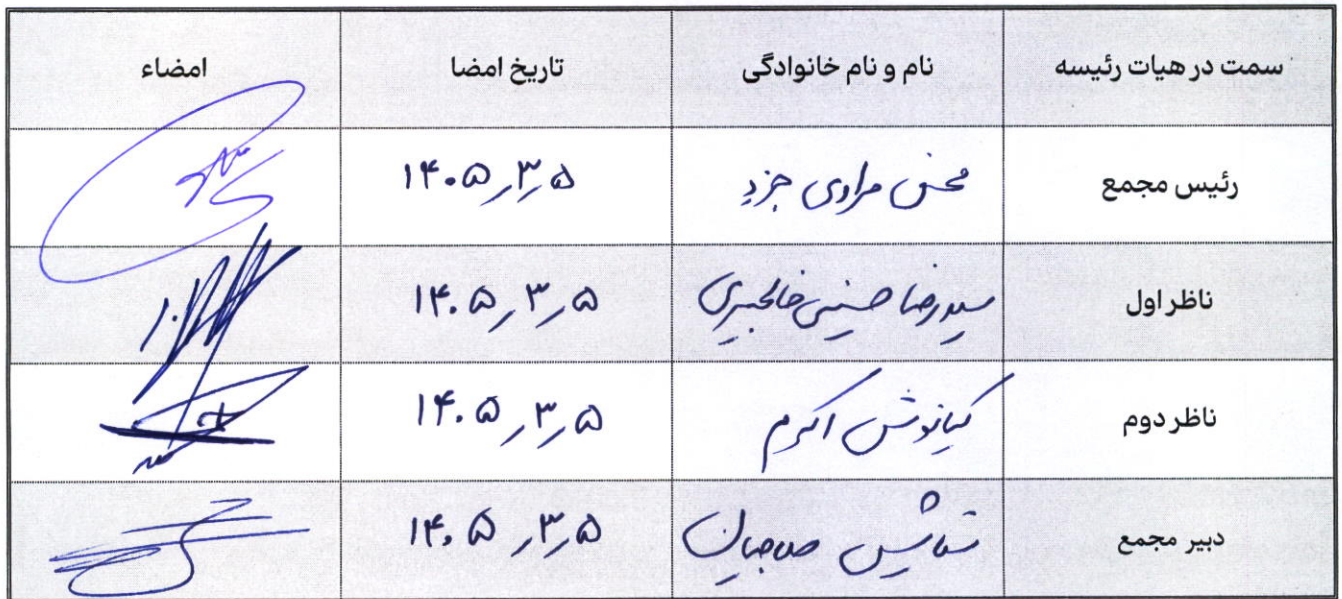 سمت در هیات رئیسه نام و نام خانوادگی تاریخ امضا امضاء
رئیس مجمع محسن مرادی جزء ۱۴۰۵٫۳٫۵
ناظر اول سیدرضا حسینی خالجیری ۱۴۰۵٫۳٫۵
ناظر دوم کیانوش اکرم ۱۴۰۵٫۳٫۵
دبیر مجمع ۱۴۰۵٫۳٫۵